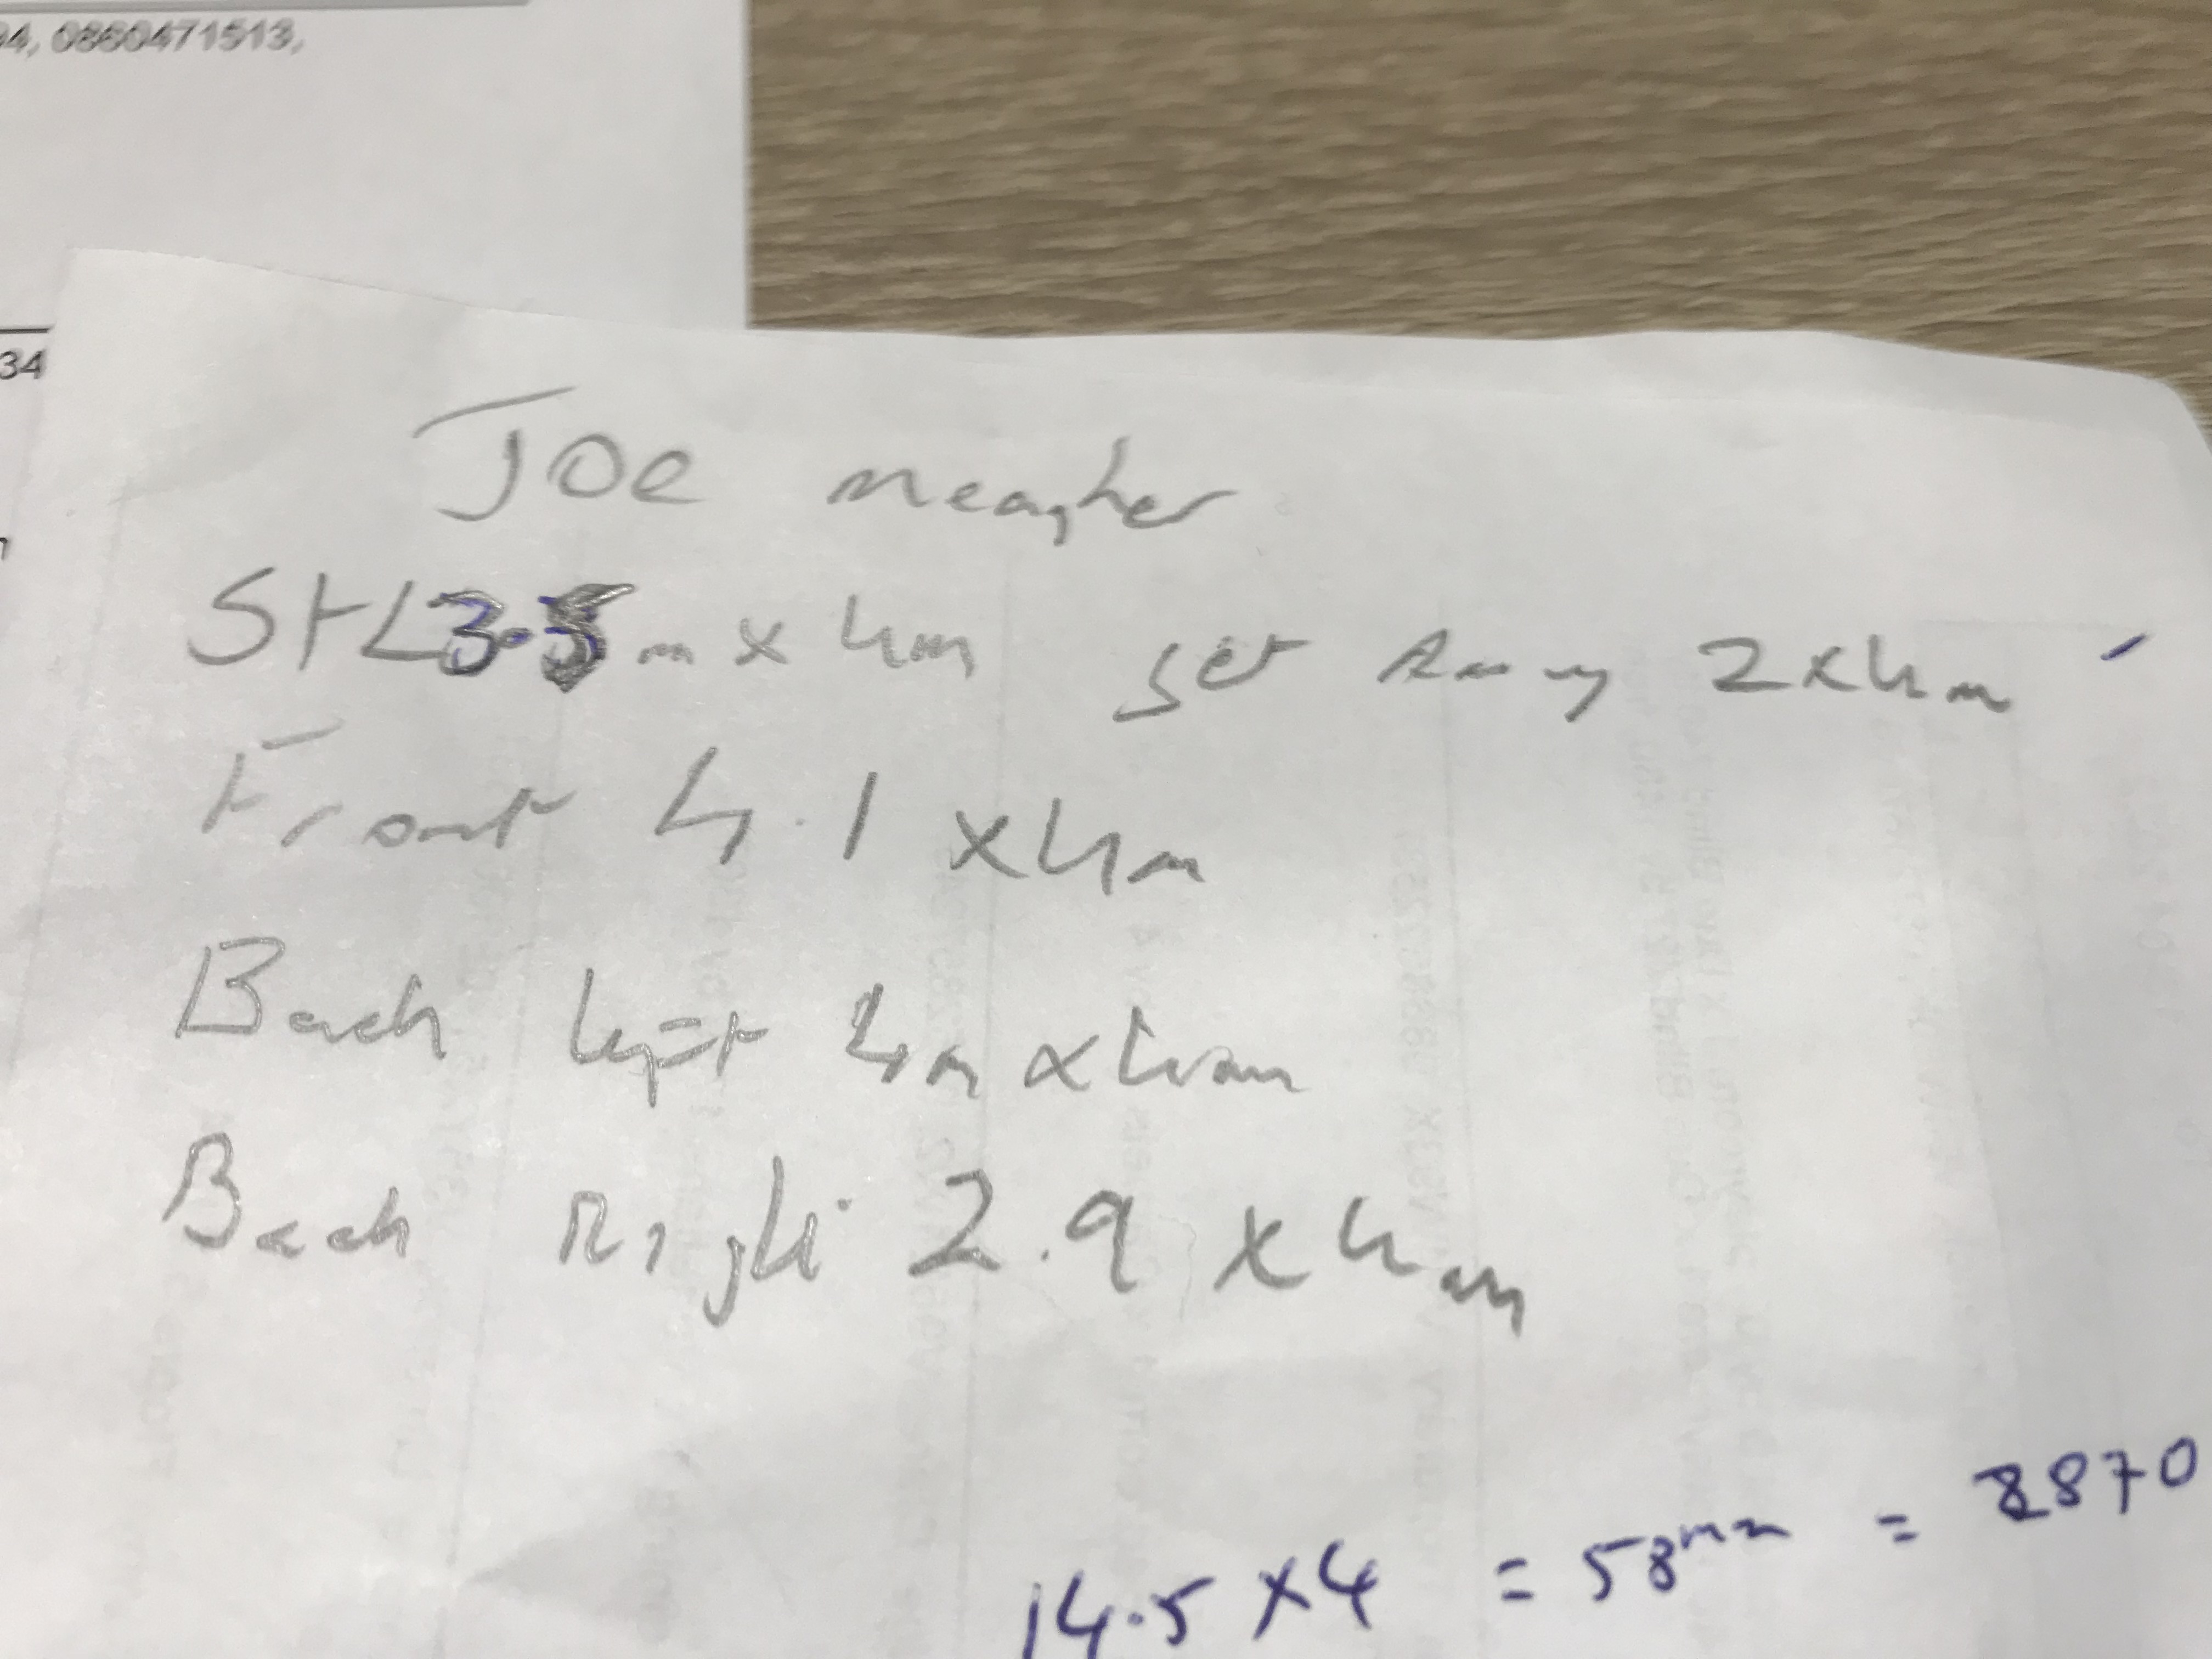 94, 0860471513,
34
Joe meagher
St L 3.5m x 4m set Away 2x4m
Front 4.1 x 4m
Back left 4m x 4m
Back Right 2.9 x 4m
14.5 x 4 = 58m2 = 2870